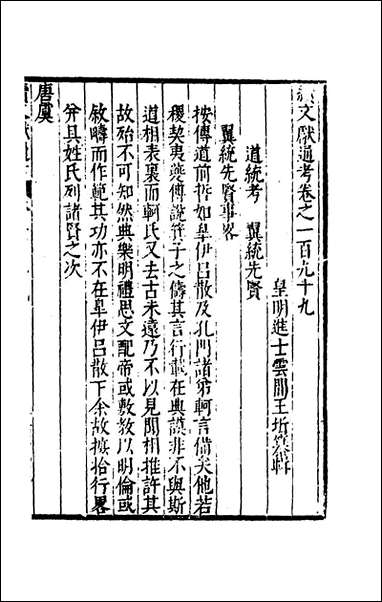 續文獻通考卷之一百九十九
皇明進士雲間王圻纂輯
道統考　翼統先賢
翼統先賢事畧
按傳道前哲如皐伊呂散及孔門諸弟軻言備矣他若
稷契夷夔傅說箕子之儔其言行載在典謨非不與斯
道相表裏而軻氏又去古未遠乃不以見聞相推許其
故殆不可知然典樂明禮思文配帝或敷教以明倫或
敘疇而作範其功亦不在皐伊呂散下余故摭拾行畧
并且姓氏列諸賢之次
唐虞